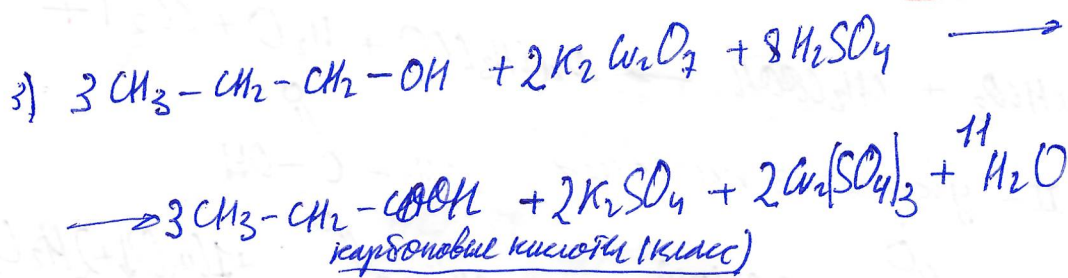 3) 3 CH₃ – CH₂ – CH₂ – OH + 2K₂Cr₂O₇ + 8H₂SO₄ ⟶
⟶ 3 CH₃ – CH₂ – COOH + 2K₂SO₄ + 2Cr₂(SO₄)₃ + 11H₂O
карбоновые кислоты (класс)